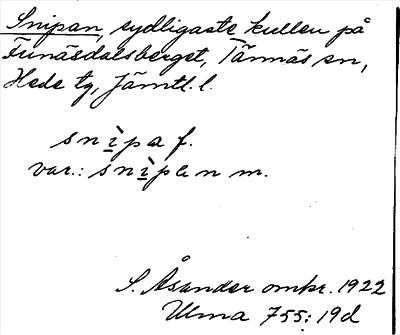 Snipan, sydligaste kullen på
Funäsdalsberget, Tännäs sn,
Hede tg, Jämtl. l.
snìpa f.
var.: snìpan m.
S. Åsander omkr. 1922
Ulma 755:19d